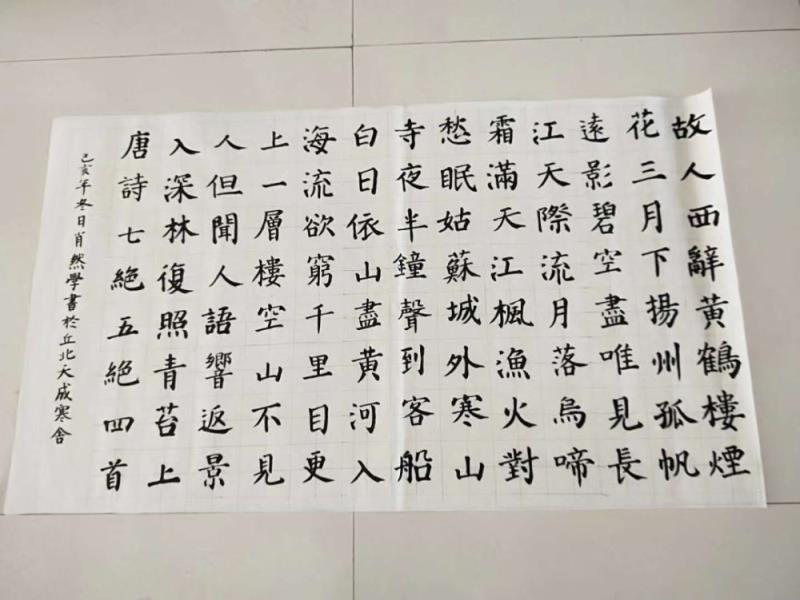 故人西辭黃鶴樓煙
花三月下揚州孤帆
遠影碧空盡唯見長
江天際流月落烏啼
霜滿天江楓漁火對
愁眠姑蘇城外寒山
寺夜半鐘聲到客船
白日依山盡黃河入
海流欲窮千里目更
上一層樓空山不見
人但聞人語響返景
入深林復照青苔上
唐詩七絕五絕四首
己亥年冬日肖然學書於丘北天成寒舍